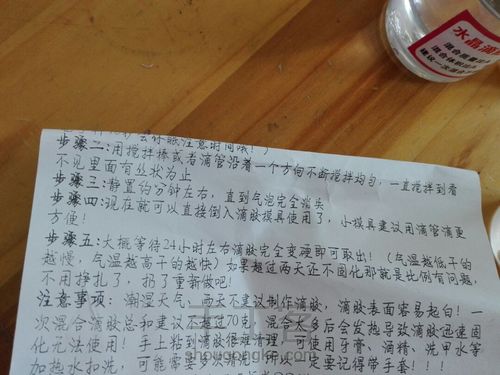 水晶滴
混合质量比
混合体积比
建议一次混合
会休眠注意时间哦!)
步骤二:用搅拌棒或者滴管沿着一个方向不断搅拌均匀,一直搅拌到看
不见里面有丝状为止
步骤三:静置约分钟左右,直到气泡完全消失
步骤四:现在就可以直接倒入滴胶模具使用了,小模具建议用滴管滴更
方便!
步骤五:大概等待24小时左右滴胶完全变硬即可取出!(气温越低干的
越慢,气温越高干的越快)如果超过两天还不固化那就是比例有问题,
不用挣扎了,扔了重新做吧!
注意事项:潮湿天气,两天不建议制作滴胶,滴胶表面容易起白!一
次混合滴胶总和建议不超过70克,混合太多后会发热导致滴胶迅速固
化无法使用!手上粘到滴胶很难清理,可使用牙膏、酒精、洗甲水等
加热水和洗,可能需要多次清洗
一定要记得带手套!!!
shougongke.com